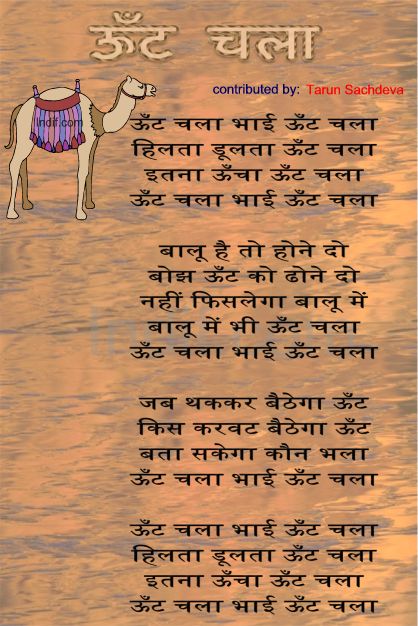 ऊँट चला
contributed by: Tarun Sachdeva
Indif.com
ऊँट चला भाई ऊँट चला
हिलता डूलता ऊँट चला
इतना ऊँचा ऊँट चला
ऊँट चला भाई ऊँट चला
बालू है तो होने दो
बोझ ऊँट को ढोने दो
नहीं फिसलेगा बालू में
बालू में भी ऊँट चला
ऊँट चला भाई ऊँट चला
जब थककर बैठेगा ऊँट
किस करवट बैठेगा ऊँट
बता सकेगा कौन भला
ऊँट चला भाई ऊँट चला
ऊँट चला भाई ऊँट चला
हिलता डूलता ऊँट चला
इतना ऊँचा ऊँट चला
ऊँट चला भाई ऊँट चला